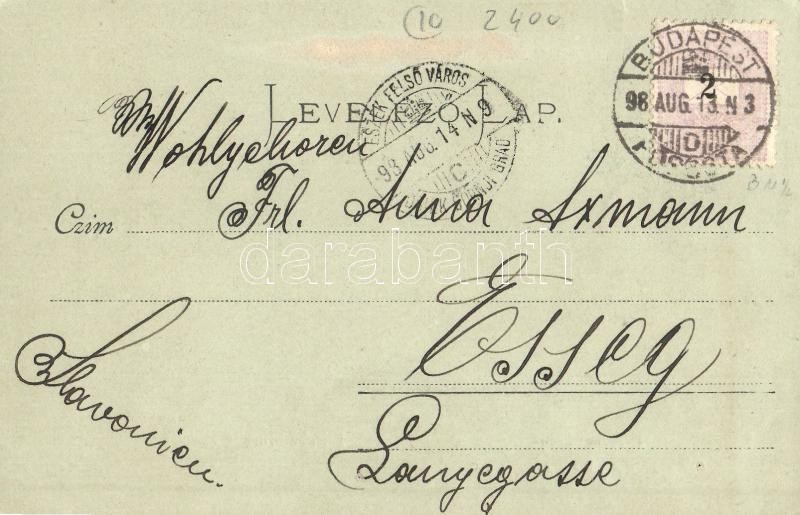 10 2400
BUDAPEST
98 AUG. 13. N 3
D
FŐPOSTA
2
ESZÉK FELSŐ VÁROS
98 AUG. 14 N 9
C
GORNJI GRAD
LEVELEZŐ LAP.
Wohlgeboren
Czim Frl. Anna Axmann
darabanth
Esseg
Slavonien.
Langegasse